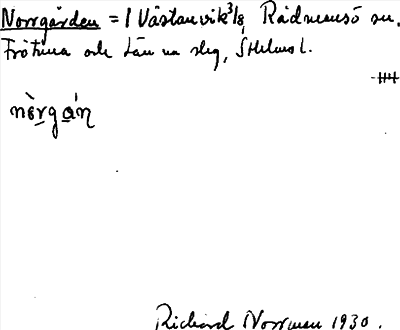 Norrgården = 1 Västanvik 3/8 Rådmansö sn.
Frötuna och Län na slg, Sthlms l.
nòrgán
Richard Norrman 1930.